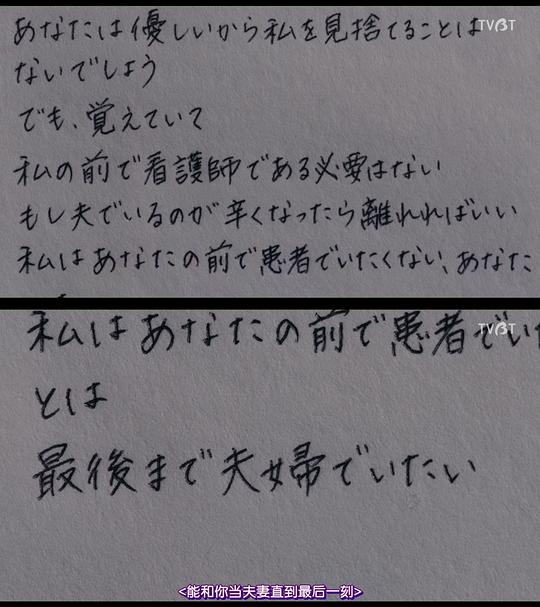 あなたは優しいから私を見捨てることは
TVBT
ないでしょう
でも、覚えていて
私の前で看護師である必要はない
もし夫でいるのが辛くなったら離れればいい
私はあなたの前で患者でいたくない、あなた
私はあなたの前で患者でい
TVBT
とは
最後まで夫婦でいたい
<能和你当夫妻直到最后一刻>